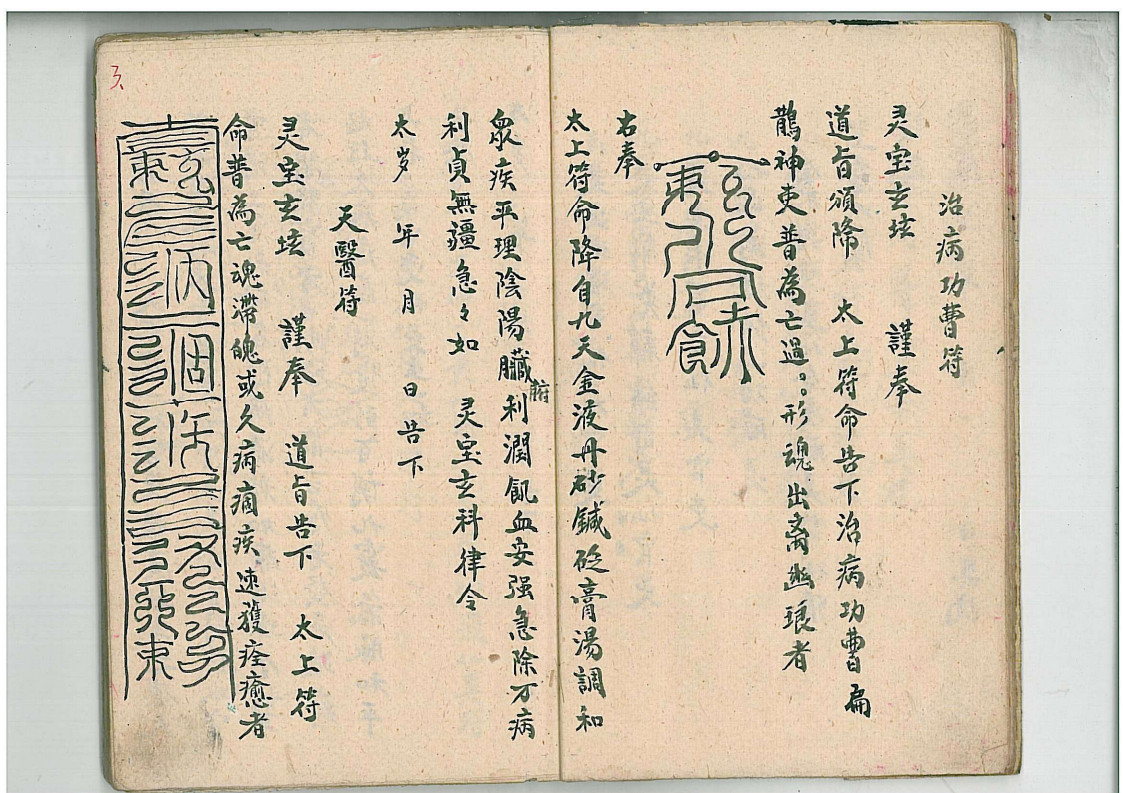 治病功曹符
灵宝玄坛 謹奉
道旨頒降 太上符命告下治病功曹扁
鵲神吏普為亡過。。形魂出离幽琅者
右奉
太上符命降自九天金液丹砂鍼砭膏湯調和
衆疾平理陰陽臟腑利潤飢血安强急除万病
利貞無疆急々如 灵宝玄科律令
太岁 年 月 日告下
天醫符
灵宝玄坛 謹奉 道旨告下 太上符
命普為亡魂滞魄或久病痼疾速獲痊癒者